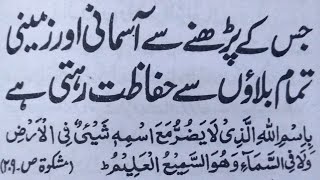 جس کے پڑھنے سے آسمانی اور زمینی
تمام بلاؤں سے حفاظت رہتی ہے
بِاسْمِ اللهِ الَّذِیْ لَا یَضُرُّ مَعَ اسْمِهٖ شَیْئٌ فِی الْاَرْضِ
وَلَا فِی السَّمَآءِ وَهُوَ السَّمِیْعُ الْعَلِیْمُ ؕ (مشکوٰۃ ص ۲۰۹)